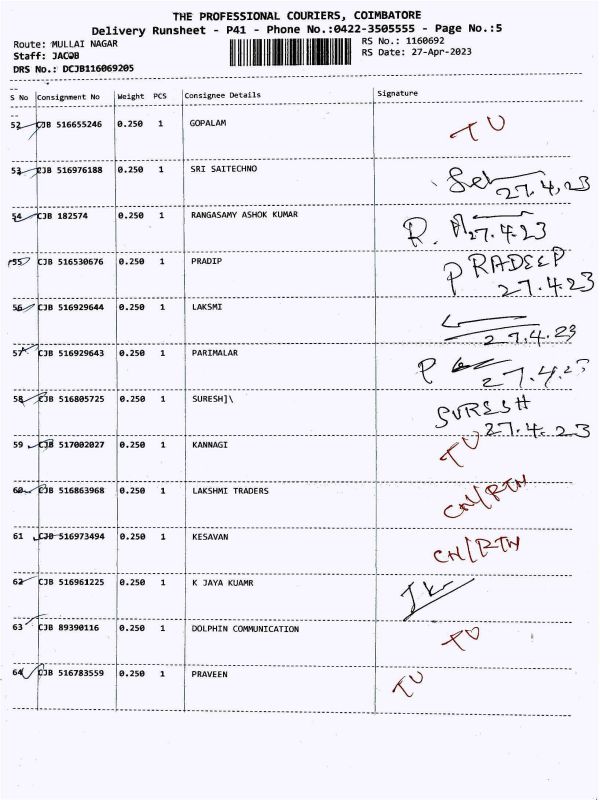 THE PROFESSIONAL COURIERS, COIMBATORE
Delivery Runsheet - P41 - Phone No.:0422-3505555 - Page No.:5
Route: MULLAI NAGAR RS No.: 1160692
Staff: JACOB RS Date: 27-Apr-2023
DRS No.: DCJB116069205
S No Consignment No Weight PCS Consignee Details Signature
52 CJB 516655246 0.250 1 GOPALAM TU
53 CJB 516976188 0.250 1 SRI SAITECHNO
27.4,23
54 CJB 182574 0.250 1 RANGASAMY ASHOK KUMAR R.
27.4.23
55 CJB 516530676 0.250 1 PRADIP PRADEEP
27.4.23
56 CJB 516929644 0.250 1 LAKSMI
27.4.23
57 CJB 516929643 0.250 1 PARIMALAR P
27.4.23
58 CJB 516805725 0.250 1 SURESH]\ SURESH
27.4.23
59 CJB 517002027 0.250 1 KANNAGI TU
60 CJB 516863968 0.250 1 LAKSHMI TRADERS CN/RTN
61 CJB 516973494 0.250 1 KESAVAN CN/RTN
62 CJB 516961225 0.250 1 K JAYA KUAMR
63 CJB 89390116 0.250 1 DOLPHIN COMMUNICATION TU
64 CJB 516783559 0.250 1 PRAVEEN TU